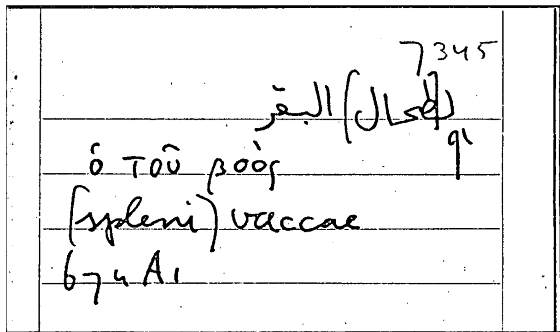 7345
(طحال) البقر
91
ὁ τοῦ βοὸς
(spleni) vaccae
674 A1